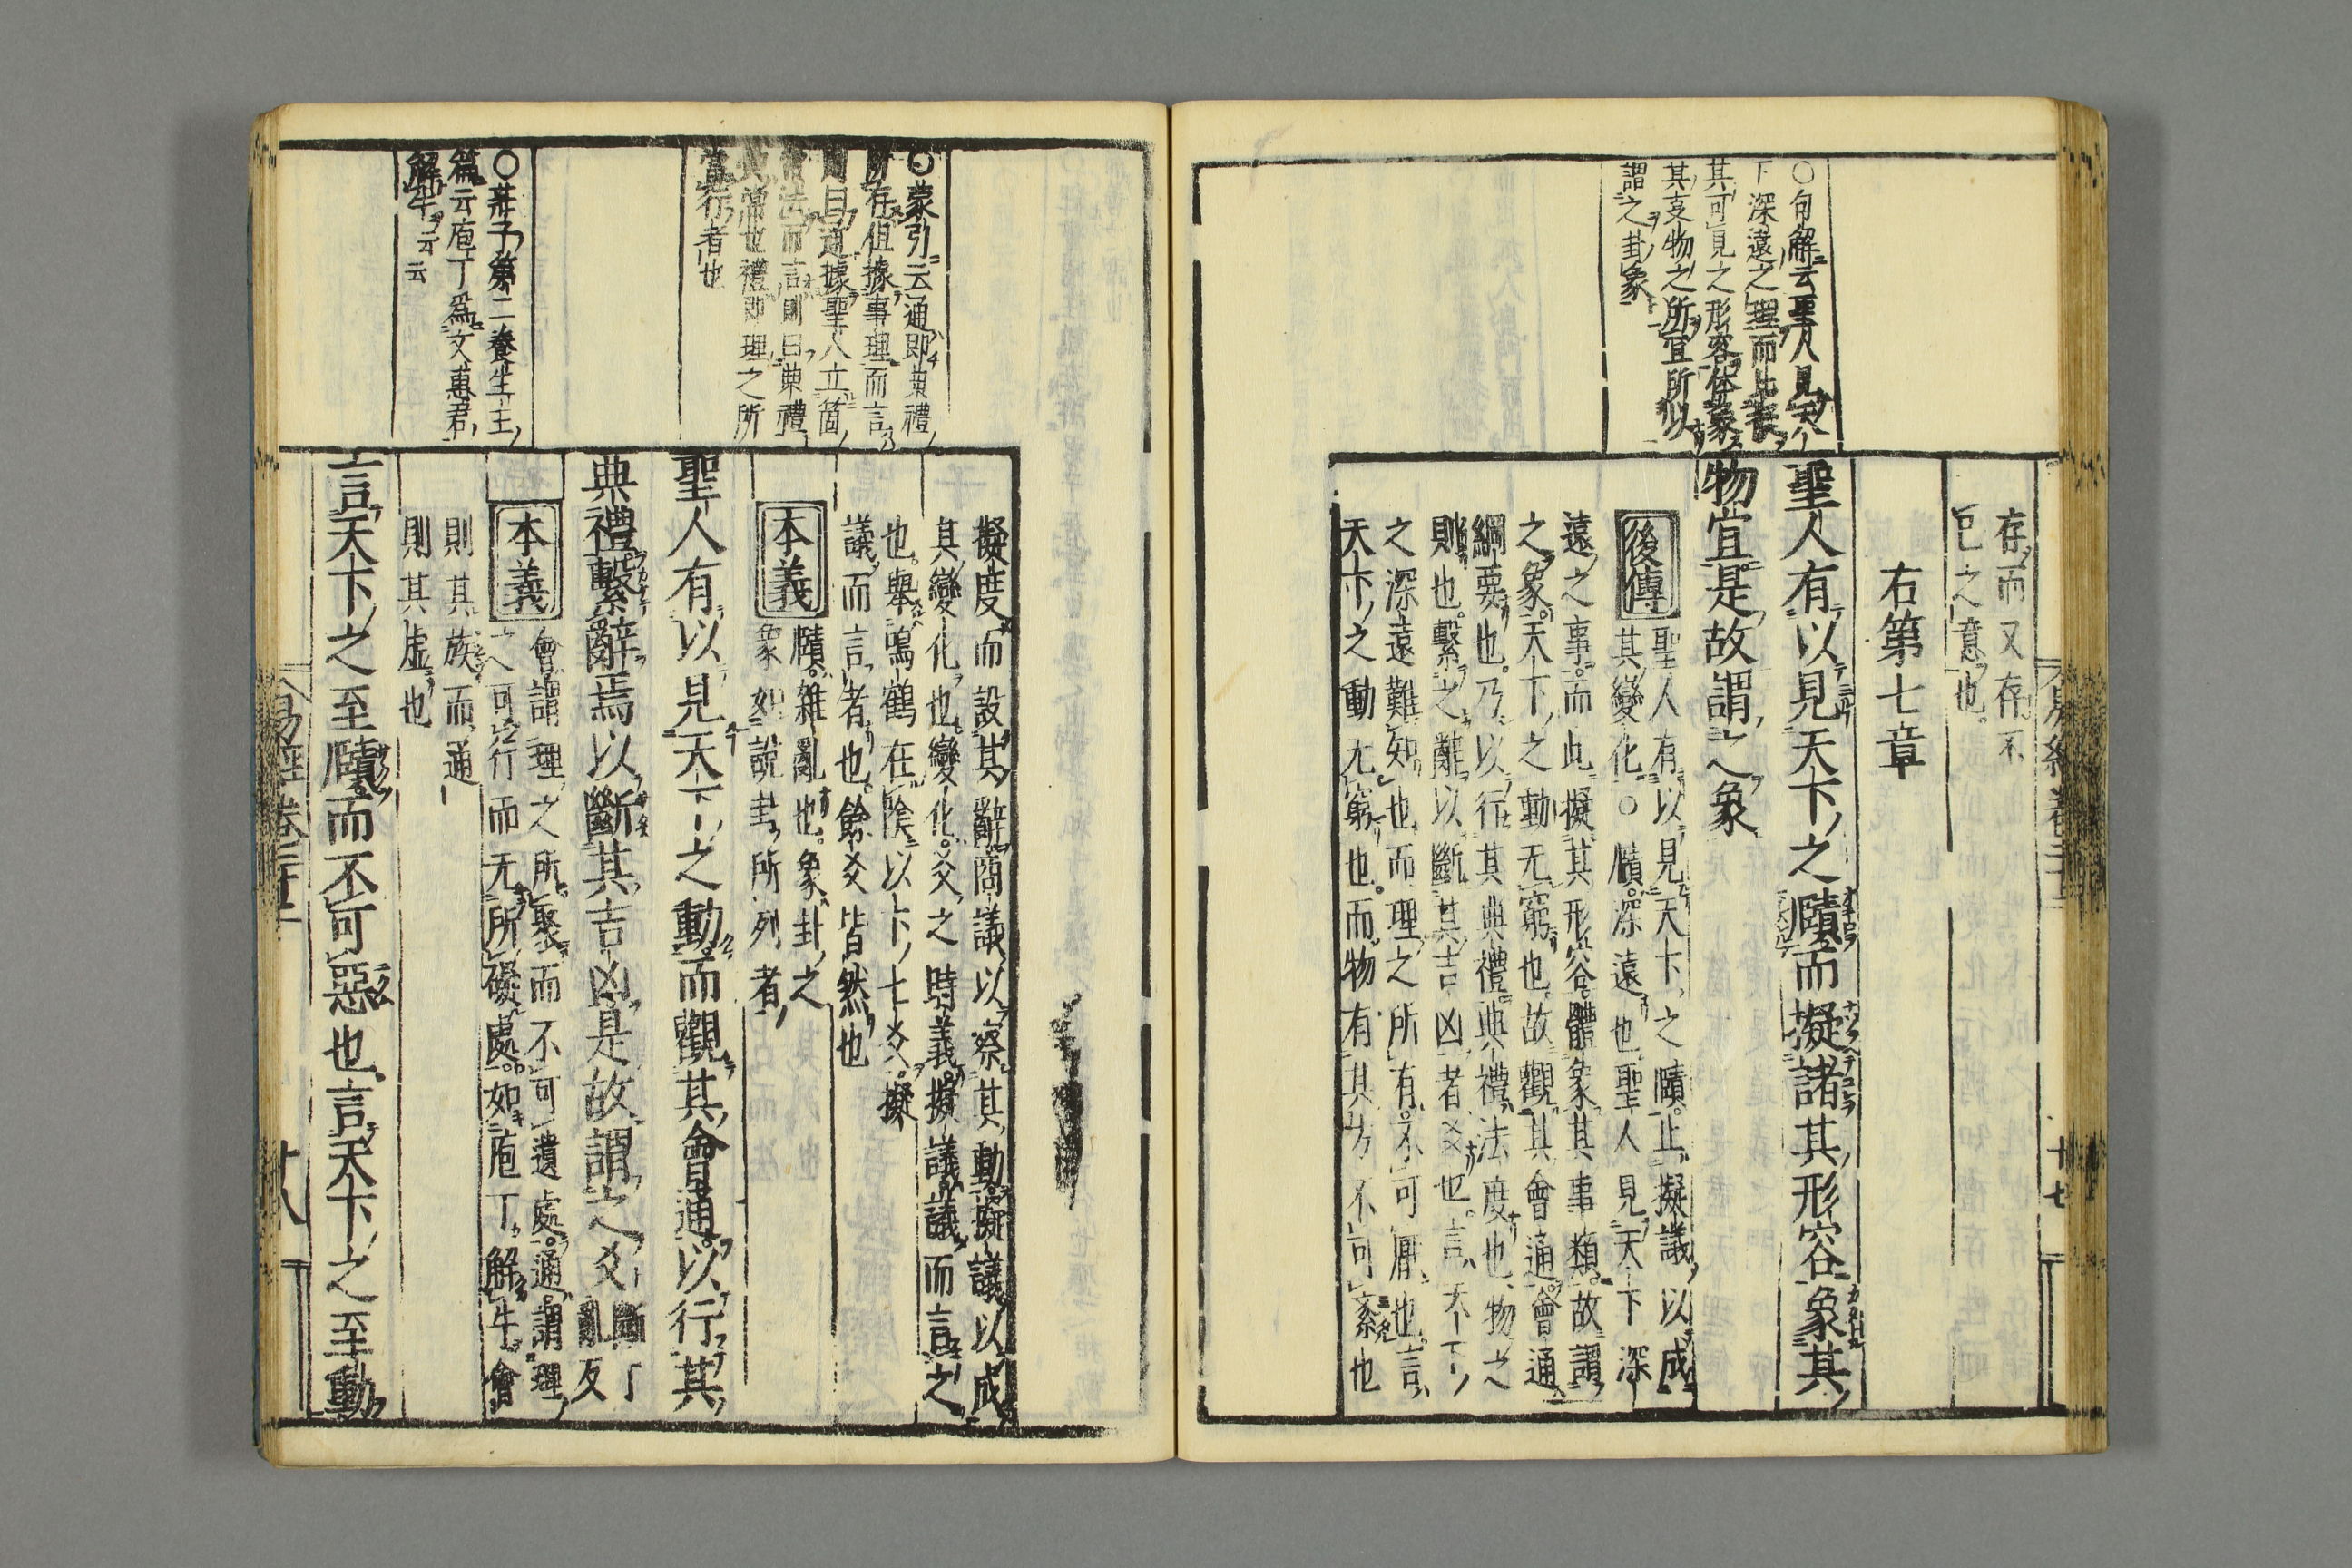 存而又存不
已之意也。
右第七章
聖人有以見天下之賾而擬諸其形容象其
物宜是故謂之象
後傳
聖人有以見天下之賾。止擬議以成
其變化○賾。深遠也聖人見天下深
遠之事。而此擬其形容。體象其事類。故謂
之象。天下之動无窮也。故觀其會通。會通
綱要也。乃以行其典禮。典禮。法度也物之
則也。繫之辭以斷其吉凶者爻也。言天下
之深遠難知也而理之所有。不可厭也。言
天下之動无窮也。而物有其方不可紊也
○句解云聖人見天
下深遠之理而比喪
其可見之形容体象
其支物之所宜所以
謂之卦象
十七
擬度而設其辭商議以察其動。擬議以成
其變化也。變化。爻之時義。擬議議而言之
也。舉鳴鶴在陰以下七爻。擬
議而言者也。餘爻皆然也
本義
賾。雜亂也。象卦之
象如說卦所列者
聖人有以見天下之動而觀其會通以行其
典禮繫辭焉以斷其吉凶是故謂之爻斷丁亂反
本義
會謂理之所聚而不可遺處。通謂理
之可行而无所礙處。如庖丁解牛。會
則其族而通
則其虛也
言天下之至賾而不可惡也。言天下之至動
○蒙引云通即典禮
所存但據事理而言
則曰通據聖人立箇
常法而言則曰典禮
典常也禮即理之所
當行者也
○莊子第二養生主
篇云庖丁爲文惠君
解牛云云
易經卷
十八